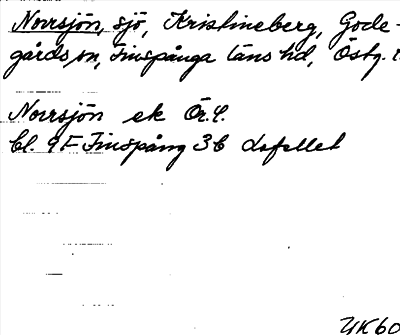 Norrsjön, sjö, Kristineberg, Gode-
gårds sn, Finspånga läns hd, Östg. l.
Norrsjön ek Ör.S.
bl. 9F Finspång 3b
UK60